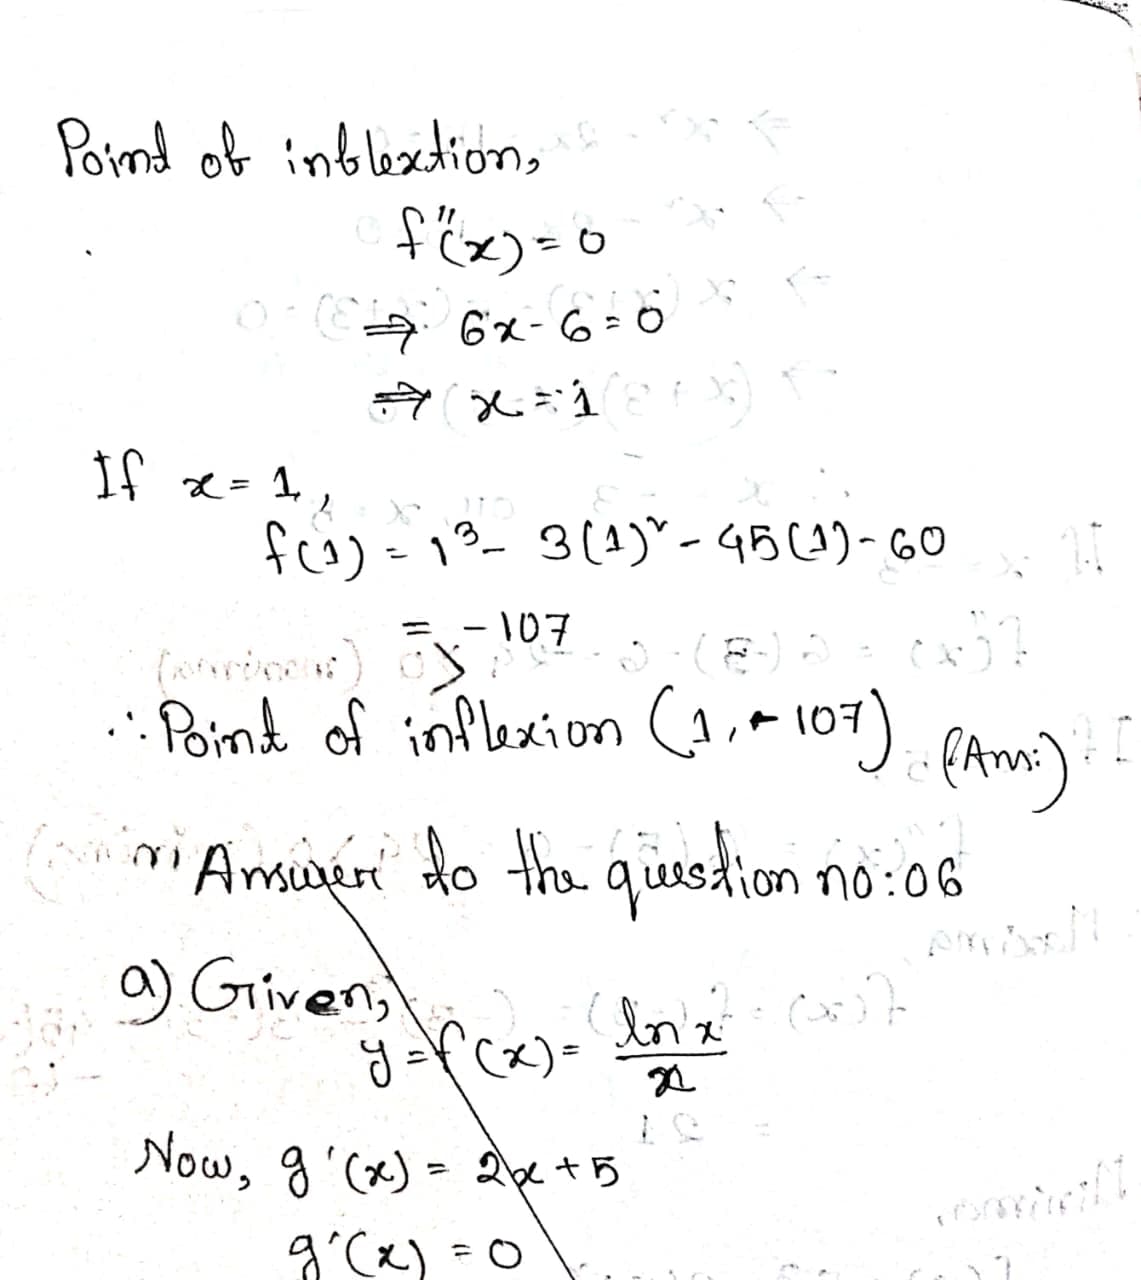 Point of inflextion,
f''(x) = 0
⇒ 6x - 6 = 0
⇒ x = 1
If x = 1,
f(1) = 1³ - 3(1)² - 45(1) - 60
= -107
∴ Point of inflexion (1, -107) (Ans:)
Answer to the question no: 06
a) Given,
y = f(x) = ln x / x
Now, g'(x) = 2x + 5
g'(x) = 0